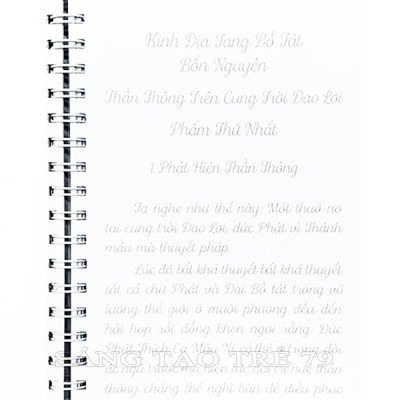 Kinh Địa Tạng Bồ Tát
Bổn Nguyện
Thần Thông Trên Cung Trời Đao Lợi
Phẩm Thứ Nhất
1 Phật Hiện Thần Thông
Ta nghe như thế này: Một thuở nọ
tại cung trời Đao Lợi, đức Phật vì Thánh
mẫu mà thuyết pháp
Lúc đó, bất khả thuyết bất khả thuyết
tất cả chư Phật và Đại Bồ tát trong vô
lượng thế giới ở mười phương đều đến
hội họp, rồi đồng khen ngợi rằng: Đức
Phật Thích Ca Mâu Ni có thể ở trong đời
SANG TAO TRE 79
ác ngũ trược, mà hiện sức đại trí huệ thần
thông chẳng thể nghĩ bàn để điều phục